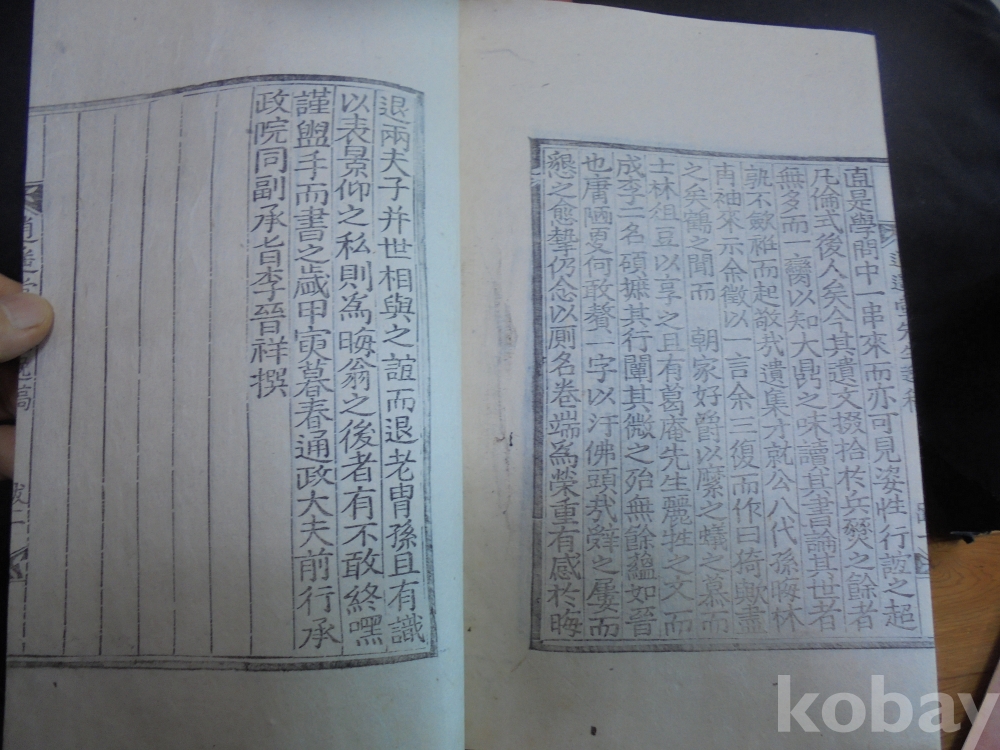 直是學問中一串來而亦可見姿性行誼之超
凡倫式後人矣今其遺文掇拾於兵燹之餘者
無多而一臠以知大鼎之味讀其書論其世者
孰不歛袵而起敬哉遺集才就公八代孫晦林
甫袖來示余徵以一言余三復而作曰猗歟盡
之矣鶴之聞而 朝家好爵以縻之蟻之慕而
士林俎豆以享之且有葛庵先生麗牲之文而
成李二名碩摭其行闡其微之殆無餘蘊如晉
也庸陋更何敢贅一字以汙佛頭哉辭之屢而
懇之愈摯仍念以厠名卷端為榮重有感於晦
退兩夫子并世相與之誼而退老冑孫且有識
以表景仰之私則為晦翁之後者有不敢終嘿
謹盥手而書之歲甲寅暮春通政大夫前行承
政院同副承旨李晉祥撰
kobay